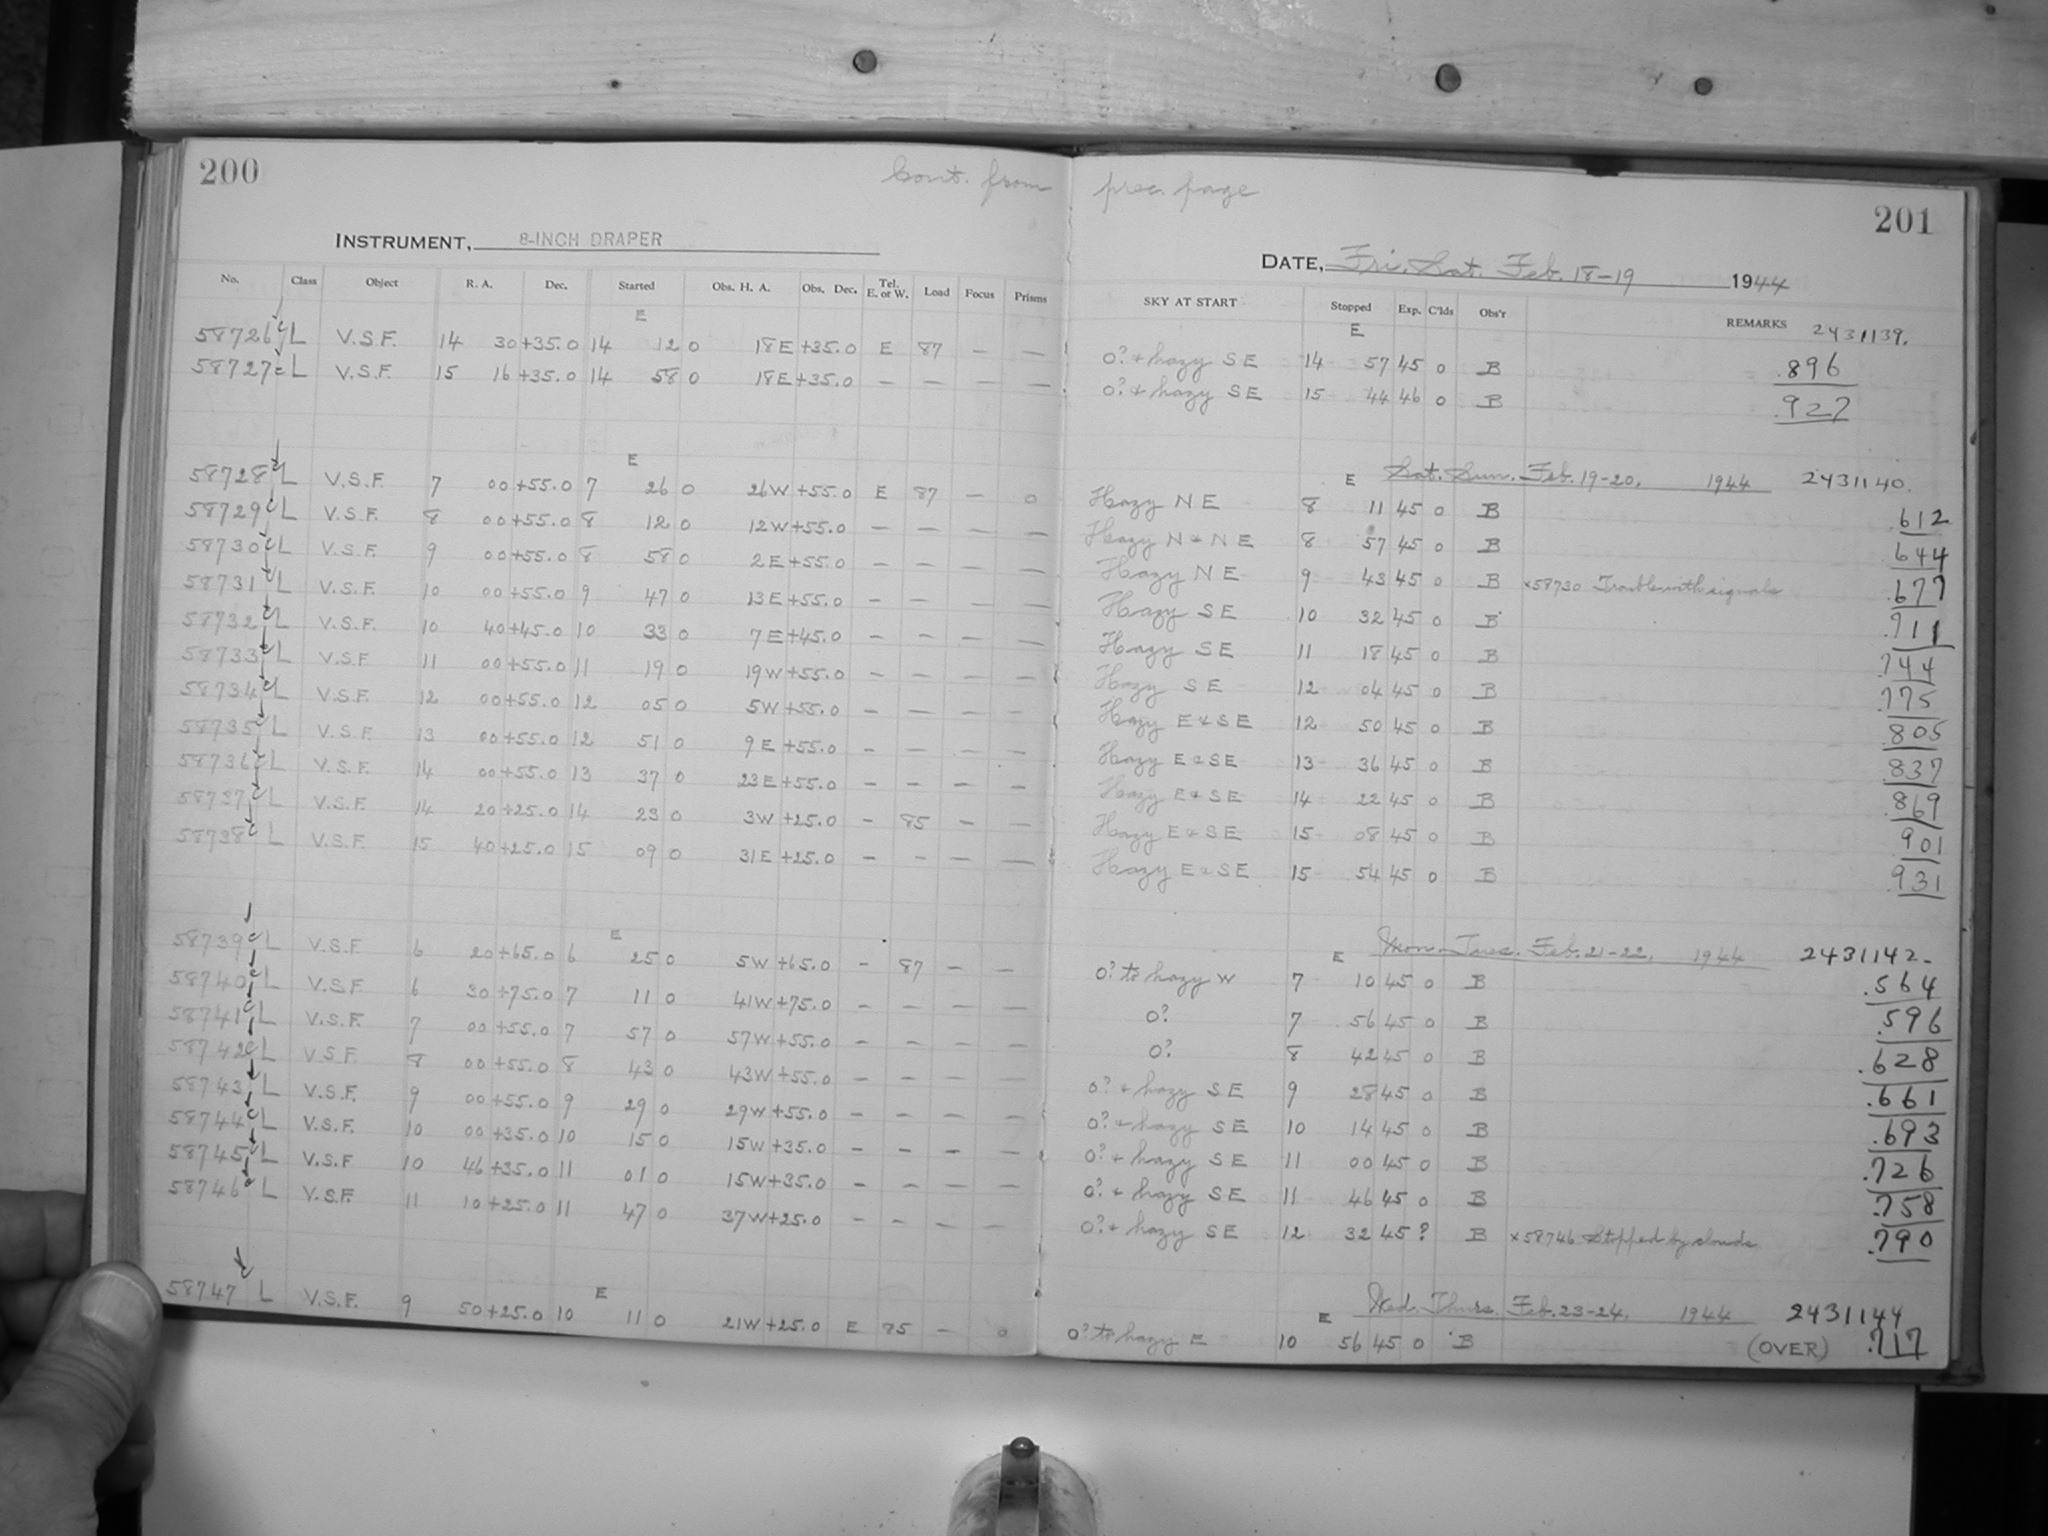 200
Cont. from prec. page
201
INSTRUMENT, 8-INCH DRAPER
DATE, Fri. Sat. Feb. 18-19 1944
No. Class Object R. A. Dec. Started Obs. H. A. Obs. Dec. Tel. E. or W. Load Focus Prisms SKY AT START Stopped Exp. C'lds Obs'r REMARKS 2431139.
E E
58726 L V.S.F. 14 30 +35.0 14 12 0 18E +35.0 E 87 — — 0? + hazy SE 14 57 45 0 B .896
58727 L V.S.F. 15 16 +35.0 14 58 0 18E +35.0 — — — — 0? & hazy SE 15 44 46 0 B .927
E E Sat. Sun. Feb. 19-20, 1944 2431140.
58728 L V.S.F. 7 00 +55.0 7 26 0 26W +55.0 E 87 — 0 Hazy NE 8 11 45 0 B .612
58729 L V.S.F. 8 00 +55.0 8 12 0 12W +55.0 — — — — Hazy N & NE 8 57 45 0 B .644
58730 L V.S.F. 9 00 +55.0 8 58 0 2E +55.0 — — — — Hazy NE 9 43 45 0 B ×58730 Trouble with signals .677
58731 L V.S.F. 10 00 +55.0 9 47 0 13E +55.0 — — — — Hazy SE 10 32 45 0 B .711
58732 L V.S.F. 10 40 +45.0 10 33 0 7E +45.0 — — — — Hazy SE 11 18 45 0 B .744
58733 L V.S.F 11 00 +55.0 11 19 0 19W +55.0 — — — — Hazy SE 12 04 45 0 B .775
58734 L V.S.F. 12 00 +55.0 12 05 0 5W +55.0 — — — — Hazy E & SE 12 50 45 0 B .805
58735 L V.S.F. 13 00 +55.0 12 51 0 9E +55.0 — — — — Hazy E & SE 13 36 45 0 B .837
58736 L V.S.F. 14 00 +55.0 13 37 0 23E +55.0 — — — — Hazy E & SE 14 22 45 0 B .869
58737 L V.S.F. 14 20 +25.0 14 23 0 3W +25.0 — 85 — — Hazy E & SE 15 08 45 0 B .901
58738 L V.S.F. 15 40 +25.0 15 09 0 31E +25.0 — — — — Hazy E & SE 15 54 45 0 B .931
E E Mon. Tues. Feb. 21-22, 1944 2431142.
58739 L V.S.F. 6 20 +65.0 6 25 0 5W +65.0 — 87 — — 0? to hazy W 7 10 45 0 B .564
58740 L V.S.F. 6 30 +75.0 7 11 0 41W +75.0 — — — — 0? 7 56 45 0 B .596
58741 L V.S.F. 7 00 +55.0 7 57 0 57W +55.0 — — — — 0? 8 42 45 0 B .628
58742 L V.S.F. 8 00 +55.0 8 43 0 43W +55.0 — — — — 0? + hazy SE 9 28 45 0 B .661
58743 L V.S.F. 9 00 +55.0 9 29 0 29W +55.0 — — — — 0? + hazy SE 10 14 45 0 B .693
58744 L V.S.F. 10 00 +35.0 10 15 0 15W +35.0 — — — — 0? + hazy SE 11 00 45 0 B .726
58745 L V.S.F 10 46 +35.0 11 01 0 15W +35.0 — — — — 0? + hazy SE 11 46 45 0 B .758
58746 L V.S.F. 11 10 +25.0 11 47 0 37W +25.0 — — — — 0? + hazy SE 12 32 45 ? B ×58746 Stopped by clouds .790
E E Wed. Thurs. Feb. 23-24, 1944 2431144
58747 L V.S.F. 9 50 +25.0 10 11 0 21W +25.0 E 85 — 0 0? to hazy E 10 56 45 0 B (OVER) .717